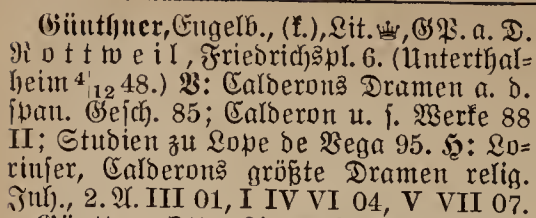 Günthner, Engelb., (k.), Lit. ♕, GP. a. D.
Rottweil, Friedrichspl. 6. (Unterthal=
heim 4|12 48.) V: Calderons Dramen a. d.
span. Gesch. 85; Calderon u. s. Werke 88
II; Studien zu Lope de Vega 95. H: Lo=
rinser, Calderons größte Dramen relig.
Inh., 2. A. III 01, I IV VI 04, V VII 07.